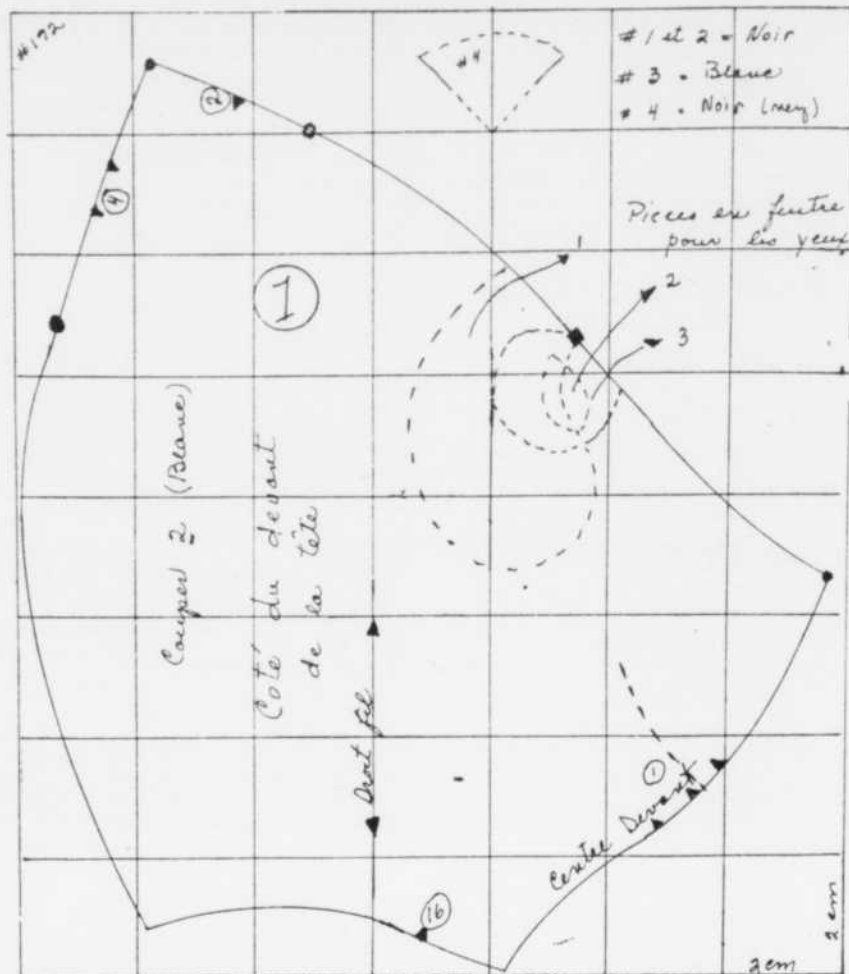 #192
#4
# 1 et 2 = Noir
# 3 = Blanc
# 4 = Noir (nez)
2
4
Pieces en feutre
pour les yeux
1
2
3
1
Couper 2 (Blanc)
Coté du devant
de la tête
Droit fil
1
Centre Devant
16
2 cm
2 cm